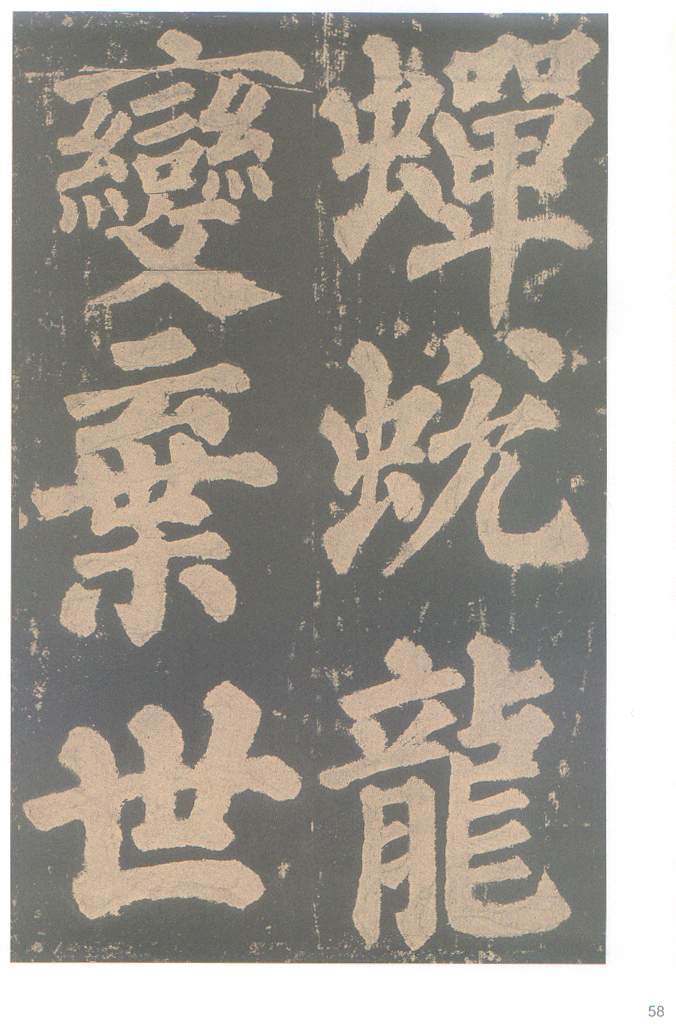 蟬蛻龍
變棄世
58